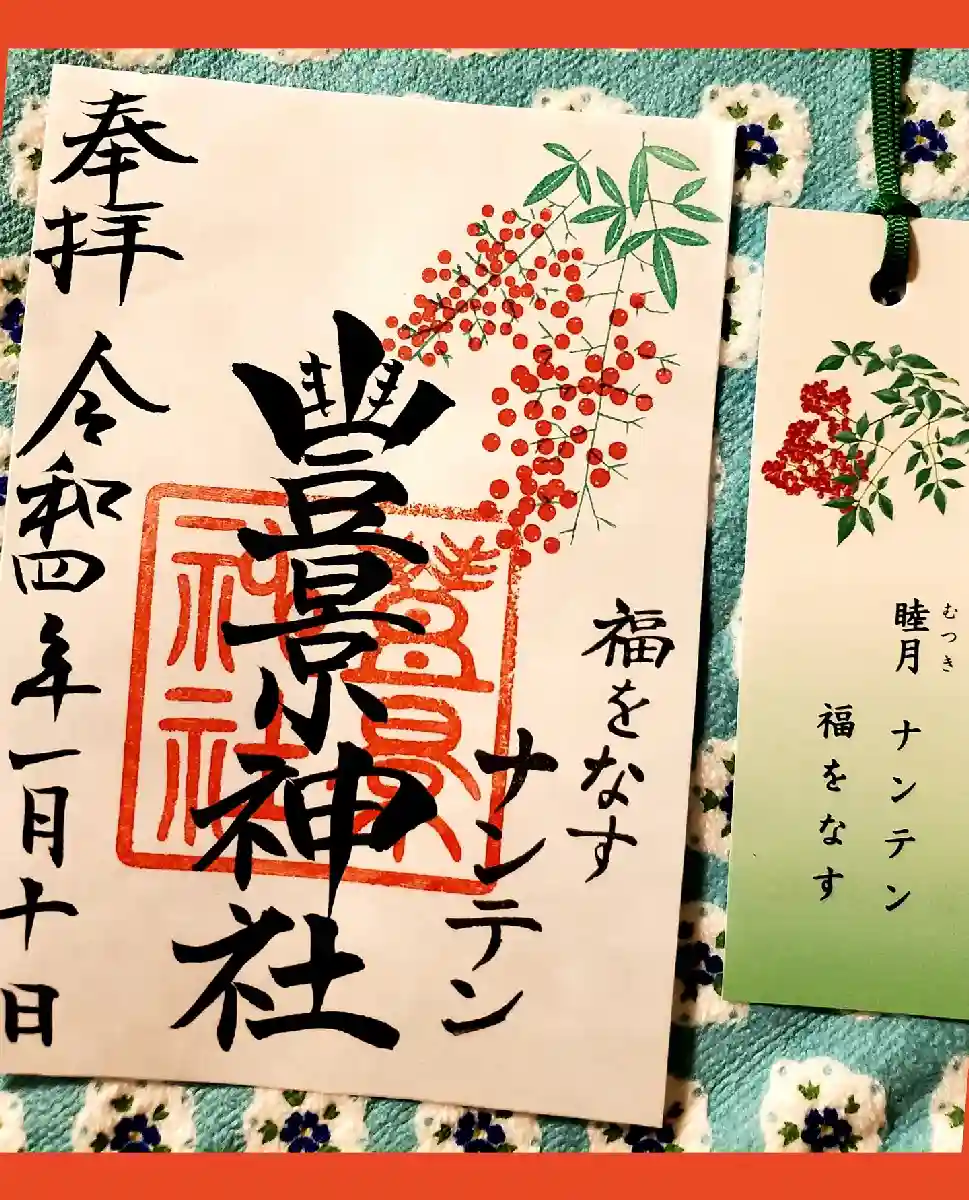 福をなす
ナンテン
豊景神社
豊景
神社
奉拝
令和四年一月十日
むつき
睦月 ナンテン
福をなす